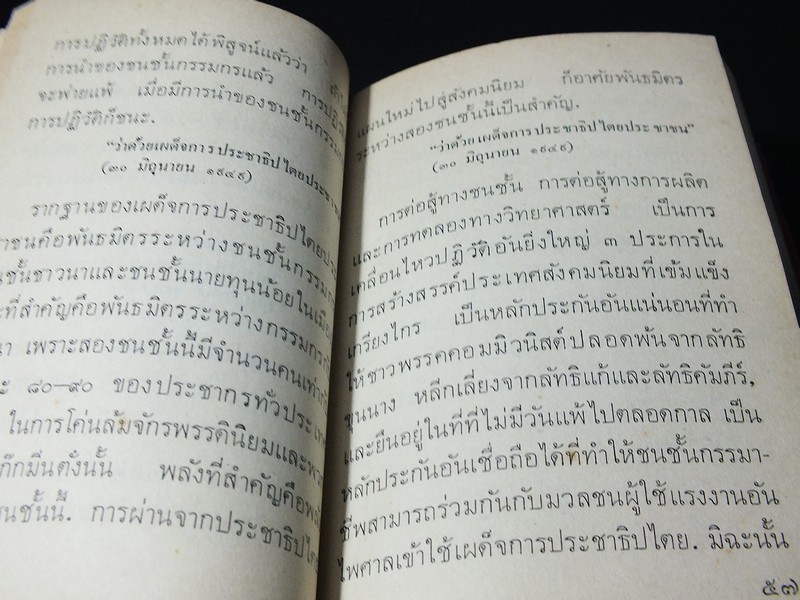 การปฏิวัติทั้งหมดได้พิสูจน์แล้วว่า
การนำของชนชั้นกรรมกรแล้ว การปฏิวัติ
จะพ่ายแพ้ เมื่อมีการนำของชนชั้นกรรมกร
การปฏิวัติก็ชนะ.
"ว่าด้วยเผด็จการประชาธิปไตยประชาชน
(๓๐ มิถุนายน ๑๙๔๙)
รากฐานของเผด็จการประชาธิปไตยประ
าชนคือพันธมิตรระหว่างชนชั้นกรรมกร
นชั้นชาวนาและชนชั้นนายทุนน้อยในเมือง
ะที่สำคัญคือพันธมิตรระหว่างกรรมกร
นา เพราะสองชนชั้นนี้มีจำนวนคนเท่ากับ
ะ ๘๐—๙๐ ของประชากรทั่วประเทศ
ในการโค่นล้มจักรพรรดินิยมและพวก
ก๊กมินตั่งนั้น พลังที่สำคัญคือพลัง
ชนชั้นนี้. การผ่านจากประชาธิปไตย
แผนใหม่ไปสู่สังคมนิยม ก็อาศัยพันธมิตร
ระหว่างสองชนชั้นนี้เป็นสำคัญ.
"ว่าด้วยเผด็จการประชาธิปไตยประชาชน"
(๓๐ มิถุนายน ๑๙๔๙)
การต่อสู้ทางชนชั้น การต่อสู้ทางการผลิต
และการทดลองทางวิทยาศาสตร์ เป็นการ
เคลื่อนไหวปฏิวัติอันยิ่งใหญ่ ๓ ประการใน
การสร้างสรรค์ประเทศสังคมนิยมที่เข้มแข็ง
เกรียงไกร เป็นหลักประกันอันแน่นอนที่ทำ
ให้ชาวพรรคคอมมิวนิสต์ปลอดพ้นจากลัทธิ
ขุนนาง หลีกเลี่ยงจากลัทธิแก้และลัทธิคัมภีร์,
และยืนอยู่ในที่ที่ไม่มีวันแพ้ไปตลอดกาล เป็น
หลักประกันอันเชื่อถือได้ที่ทำให้ชนชั้นกรรมา-
ชีพสามารถร่วมกันกับมวลชนผู้ใช้แรงงานอัน
ไพศาลเข้าใช้เผด็จการประชาธิปไตย. มิฉะนั้น
๕๗